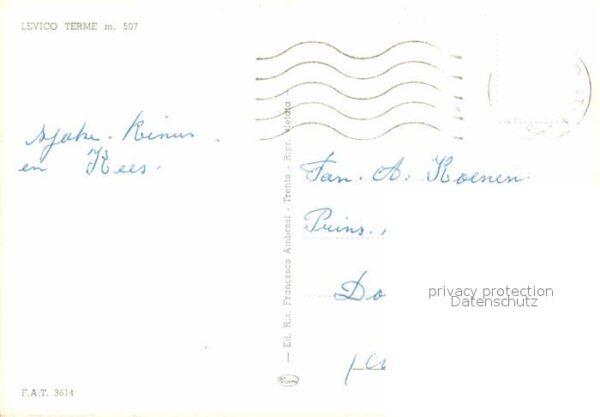 LEVICO TERME m. 507
Sjake. Rinus
en Kees.
Fam. A. Koenen.
Prins.
Do
privacy protection
Datenschutz
— Ed. Ris. Francesco Ambrosi - Trento - Ripr. vietata
F.A.T. 3614